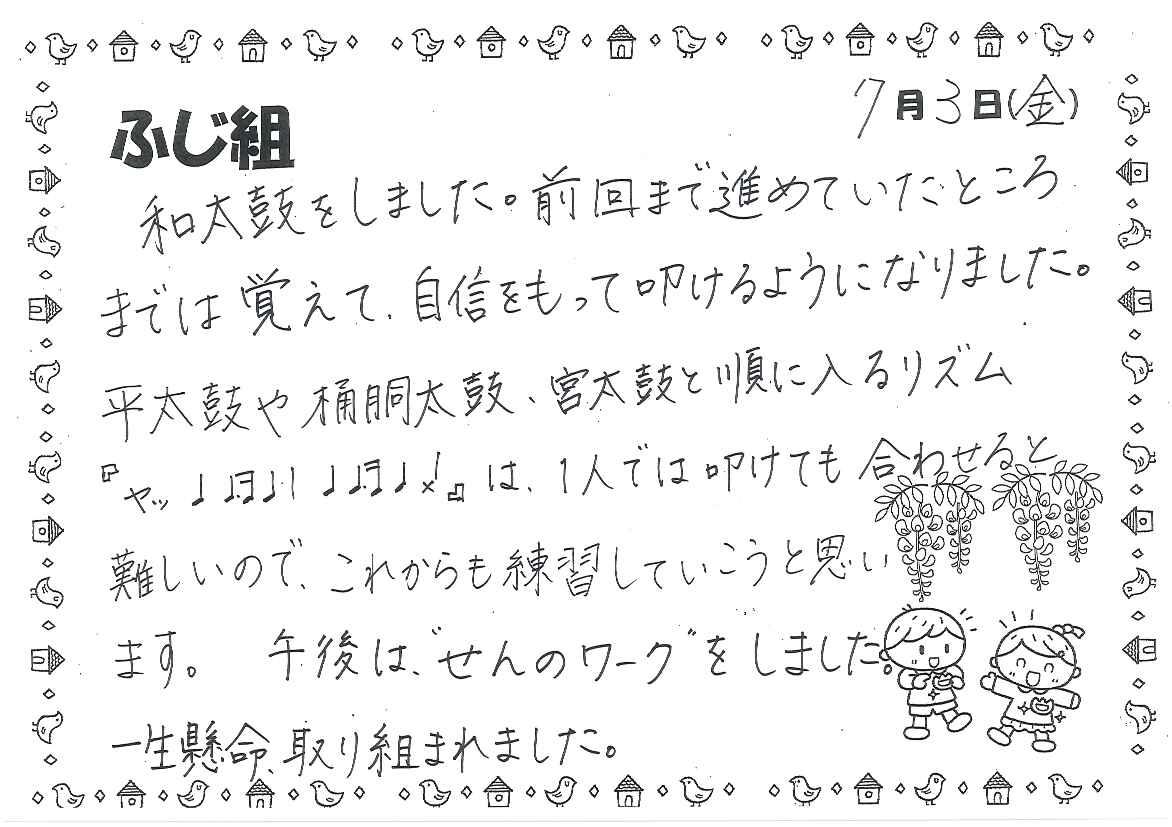 7月3日(金)
ふじ組
和太鼓をしました。前回まで進めていたところ
までは覚えて、自信をもって叩けるようになりました。
平太鼓や桶胴太鼓、宮太鼓と順に入るリズム
『ヤッ♩♫♩! ♩♫♩×!』は、1人では叩けても合わせると
難しいので、これからも練習していこうと思い
ます。 午後は、“せんのワーク”をしました。
一生懸命、取り組まれました。